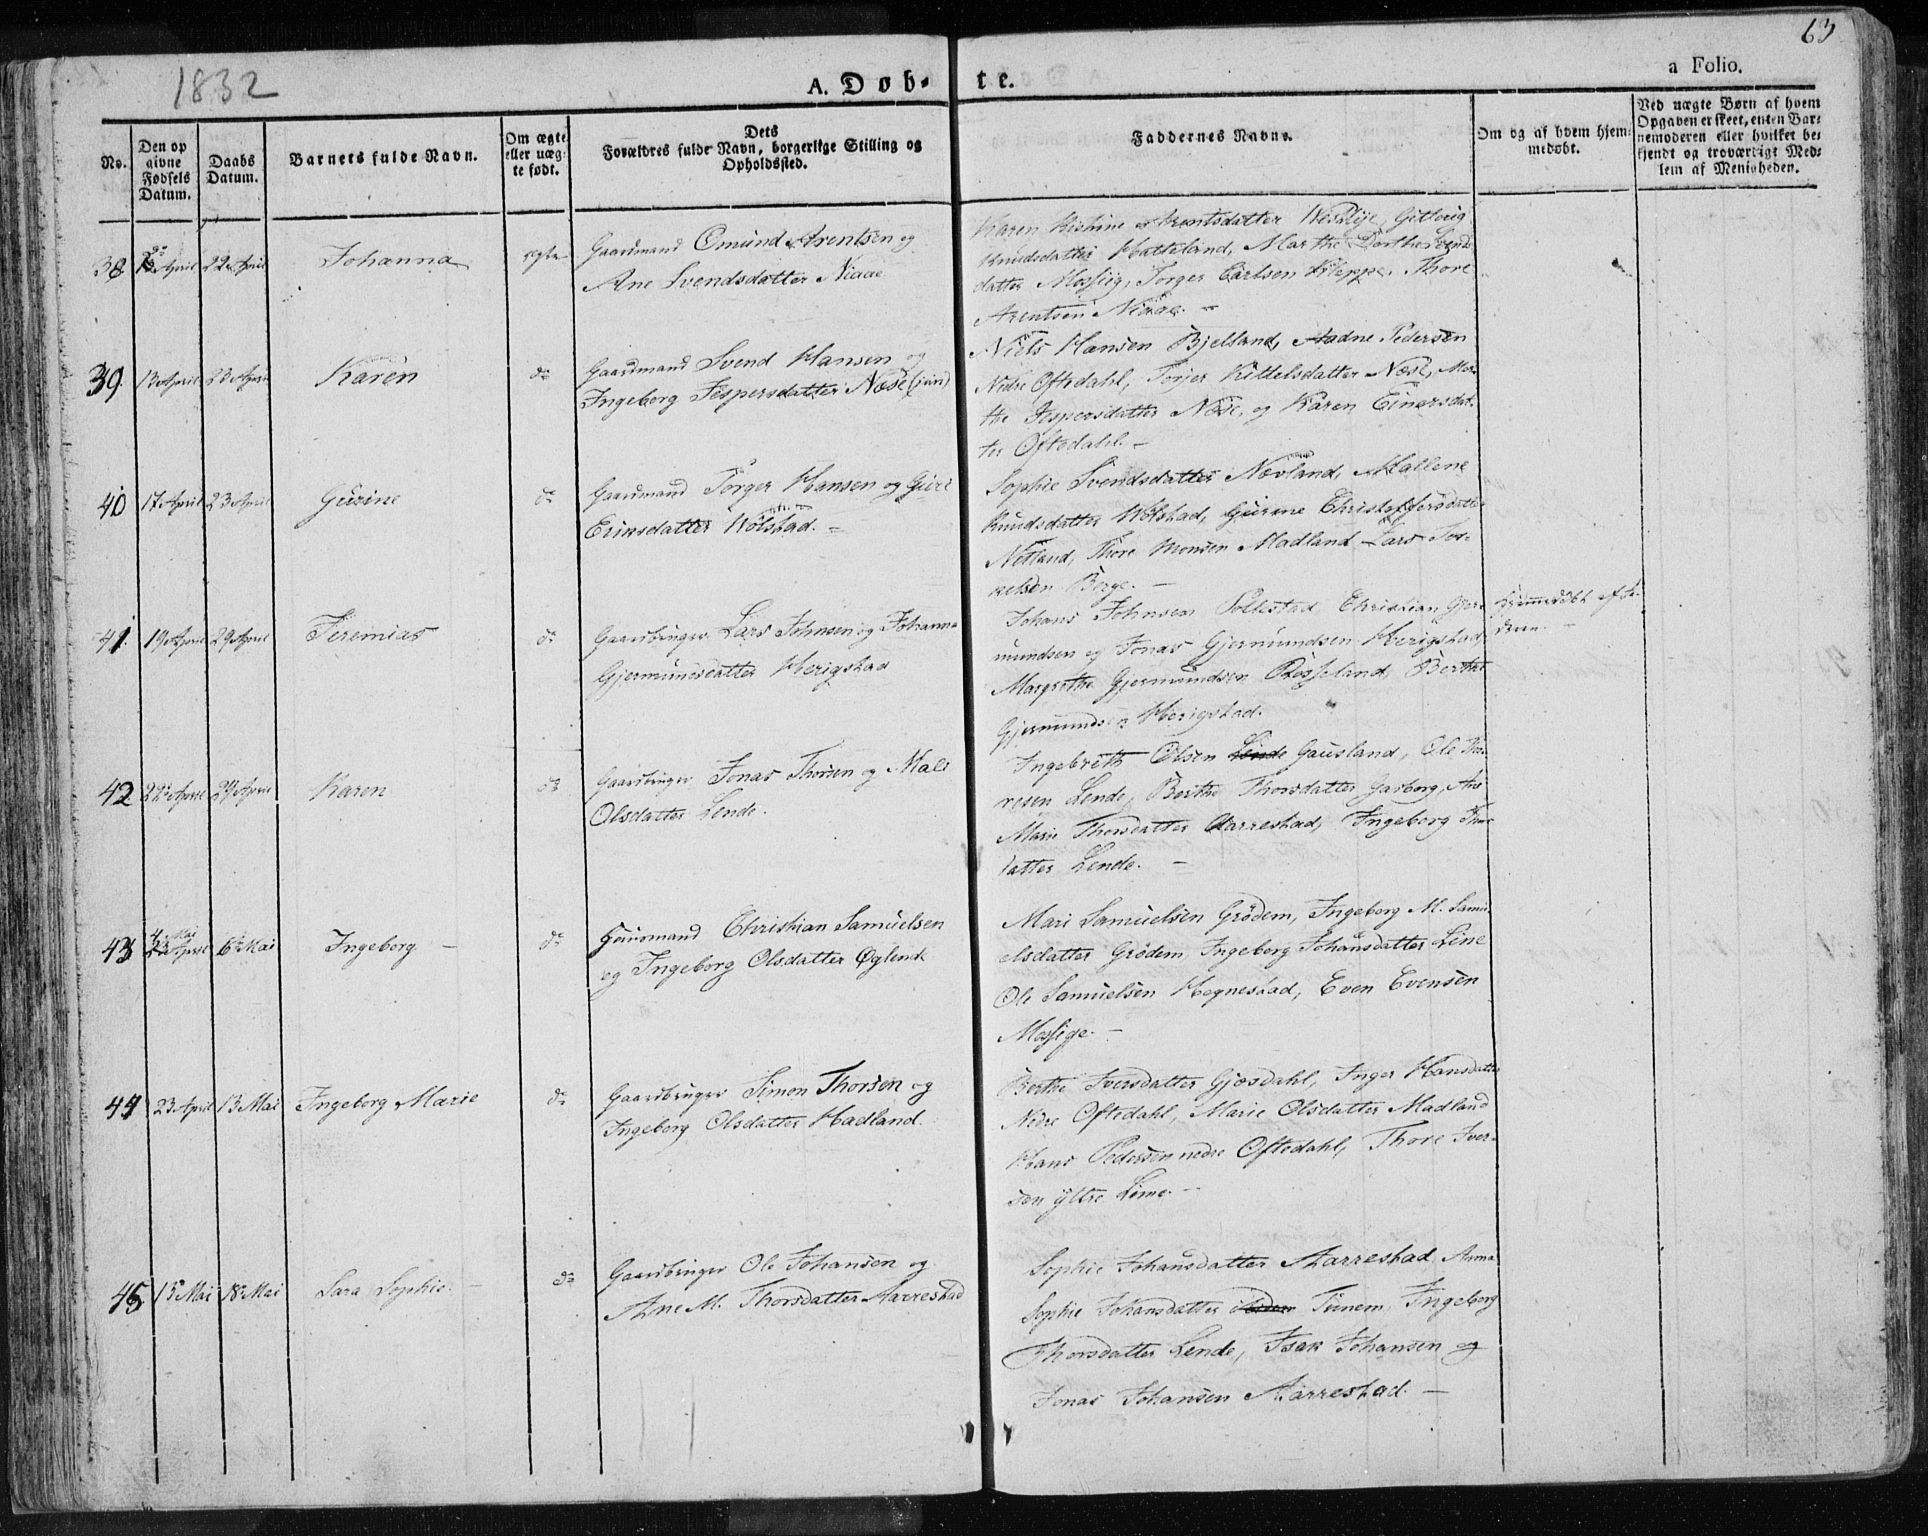 1832
63
A. Døb-
te.
a Folio.
No.
Den op
givne
Fødsels
Datum.
Daabs
Datum.
Barnets fulde Navn.
Om ægte
eller uæg-
te født.
Dets
Forældres fulde Navn, borgerlige Stilling og
Opholdssted.
Faddernes Navne.
Om og af hvem hjem-
medøbt.
Ved uægte Børn af hvem
Opgaven er skeet, enten Bar-
nemoderen eller hvilket be-
kjendt og troværdigt Med-
lem af Menigheden.
38 April 22 April Johanna ægte Gaardmand Omund Arentsen og
Ane Svendsdatter Niaae
Karen Kistine Arentsdatter Gitlerig
Knudsdatter Hatteland, Marthe Dorthe Svends
datter Mossiig, Torger Carlsen Kleppe, Thore
Arentsen Niaae. –
39. 13 April 23 April Karen do Gaardmand Svend Hansen og
Ingeborg Jespersdatter Næse
Niels Hansen Bjelland, Aadne Pedersen
Nedre Oftedahl, Torjer Kittelsdatter Næse, Mar-
the Jespersdatter Næse, og Karen Einarsdat-
ter Oftedahl. –
40 17 April 23 April Gurine do Gaardmand Torger Hansen og Guri
Eriksdatter Wølstad. –
Sophie Svendsdatter Nevland, Mallene
Knudsdatter Wølstad, Gurine Christoffersdatter
Netland, Thore Monsen Madland Lars Tor-
kelsen Berge. –
41. 19 April 29 April Jeremias do Gaardbruger Lars Johnsen og Johanna
Gjermundsdatter Herigstad
Johans Johnsen Christian Gjer-
mundsen og Jonas Gjermundsen Herigstad,
Margrethe Gjermundsen Rosseland, Berthe
Gjermundsen Herigstad.
Hjemmedøbt af Fa-
deren. –
42 22 April 29 April Karen do Gaardbruger Jonas Thorsen og Male
Olsdatter Lende.
Ingebreth Olsen Lende Gausland, Ole Tho-
resen Lende, Berthe Thorsdatter Garborg, Ane
Marie Thorsdatter Aarrestad, Ingeborg Thors
datter Lende. –
43 4 Mai April 6 Mai Ingeborg – do Huusmand Christian Samuelsen
og Ingeborg Olsdatter Øglende
Mari Samuelsen Grödem, Ingeborg M. Samu-
elsdatter Grödem, Ingeborg Johansdatter Line
Ole Samuelsen Hognestad, Even Evensen
Mossige. –
44 23 April 13 Mai Ingeborg Marie do Gaardbruger Simon Thorsen og
Ingeborg Olsdatter Hadland.
Berthe Iversdatter Gjosdahl, Inger Hansdatter
Nedre Oftedahl, Marie Olsdatter Madland
Hans Pedersen nedre Oftedahl, Thore Iver-
sen Yttre Lime. –
45 13 Mai 18 Mai Sara Sophie. – do Gaardbruger Ole Johansen og
Ane M. Thorsdatter Aarrestad
Sophie Johansdatter Aarrestad, Anna
Sophie Johansdatter Tunem, Ingeborg
Thorsdatter Lende, Isak Johansen og
Jonas Johansen Aarrestad. –